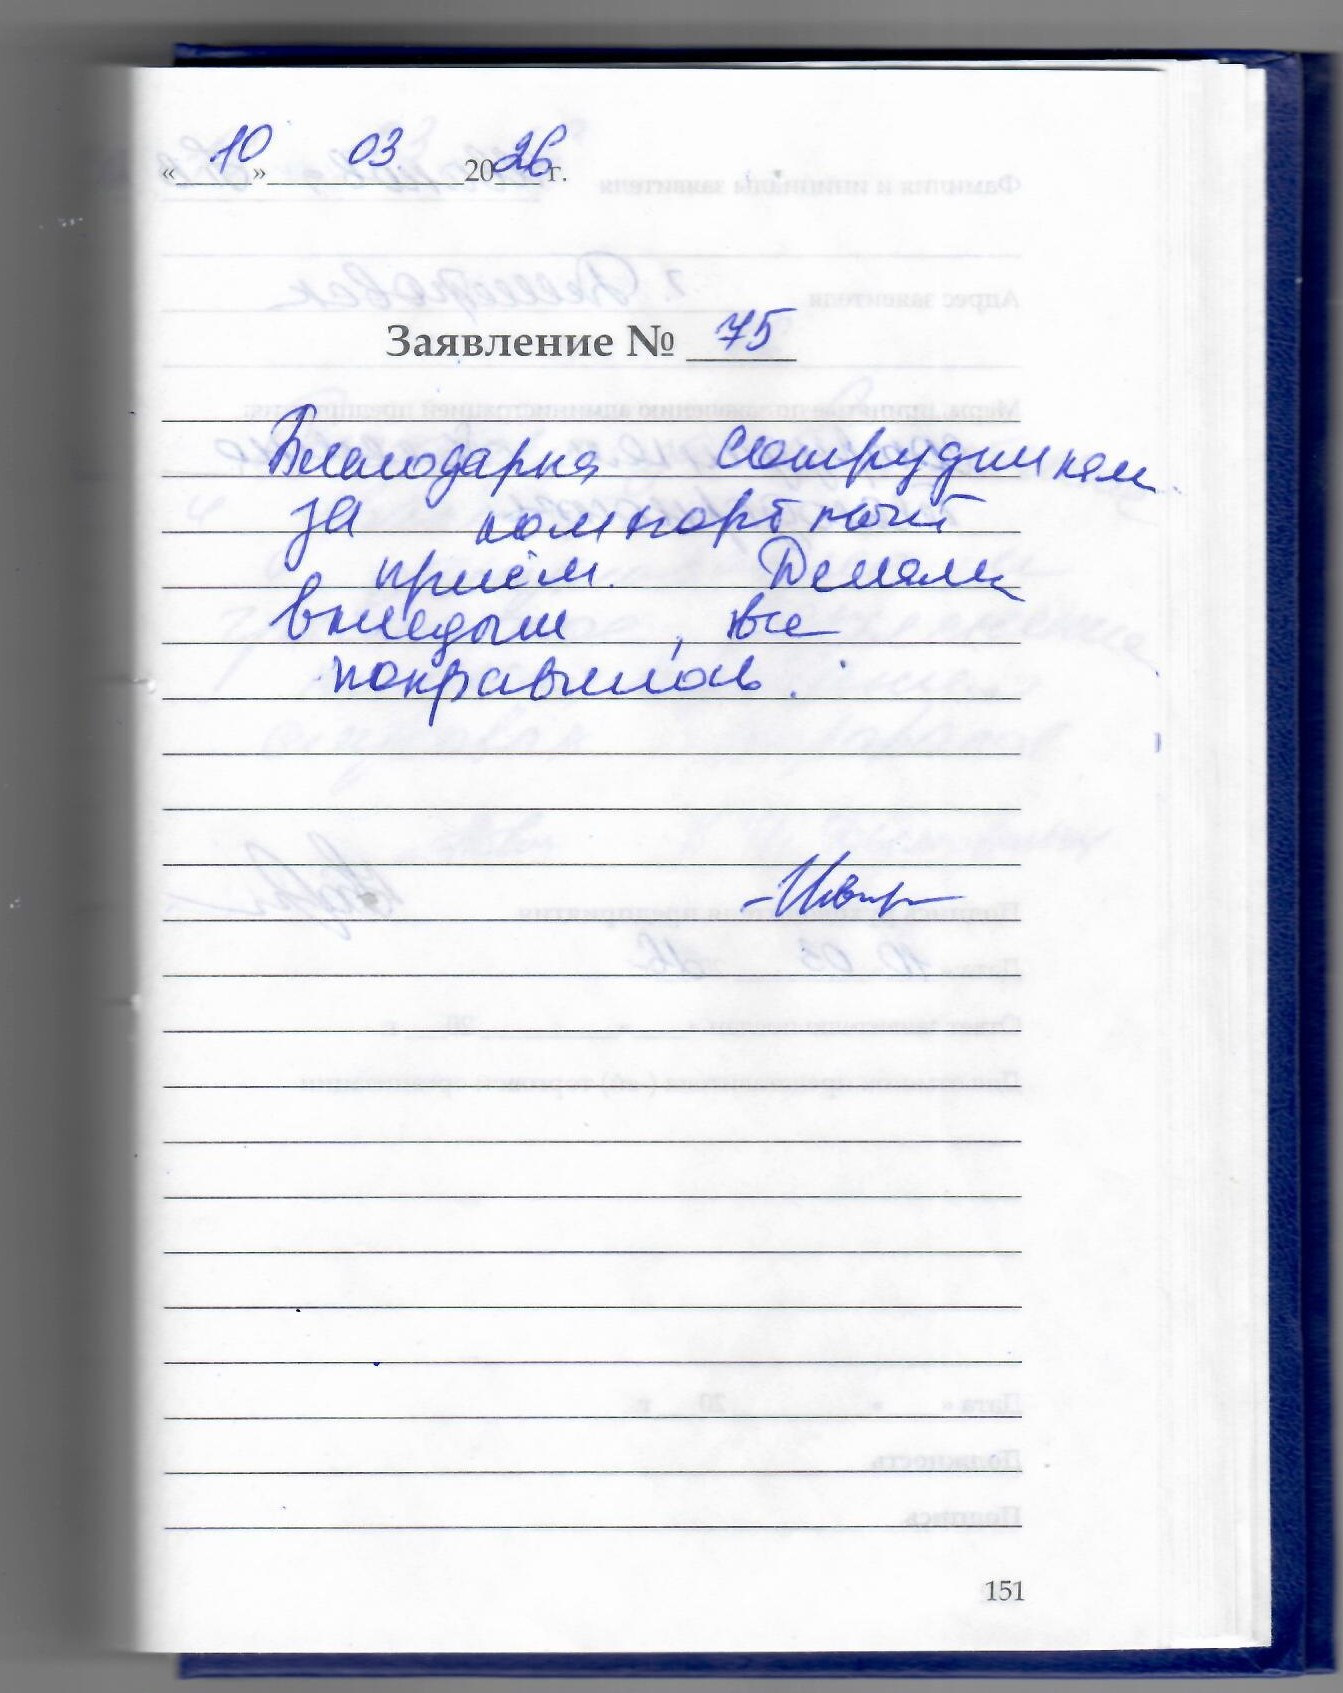 « 10 » 03. 2026 г.
Заявление № 75
Благодарна сотрудникам
за комфортный
приём. Делали
вкладыш, все
понравилось.
151